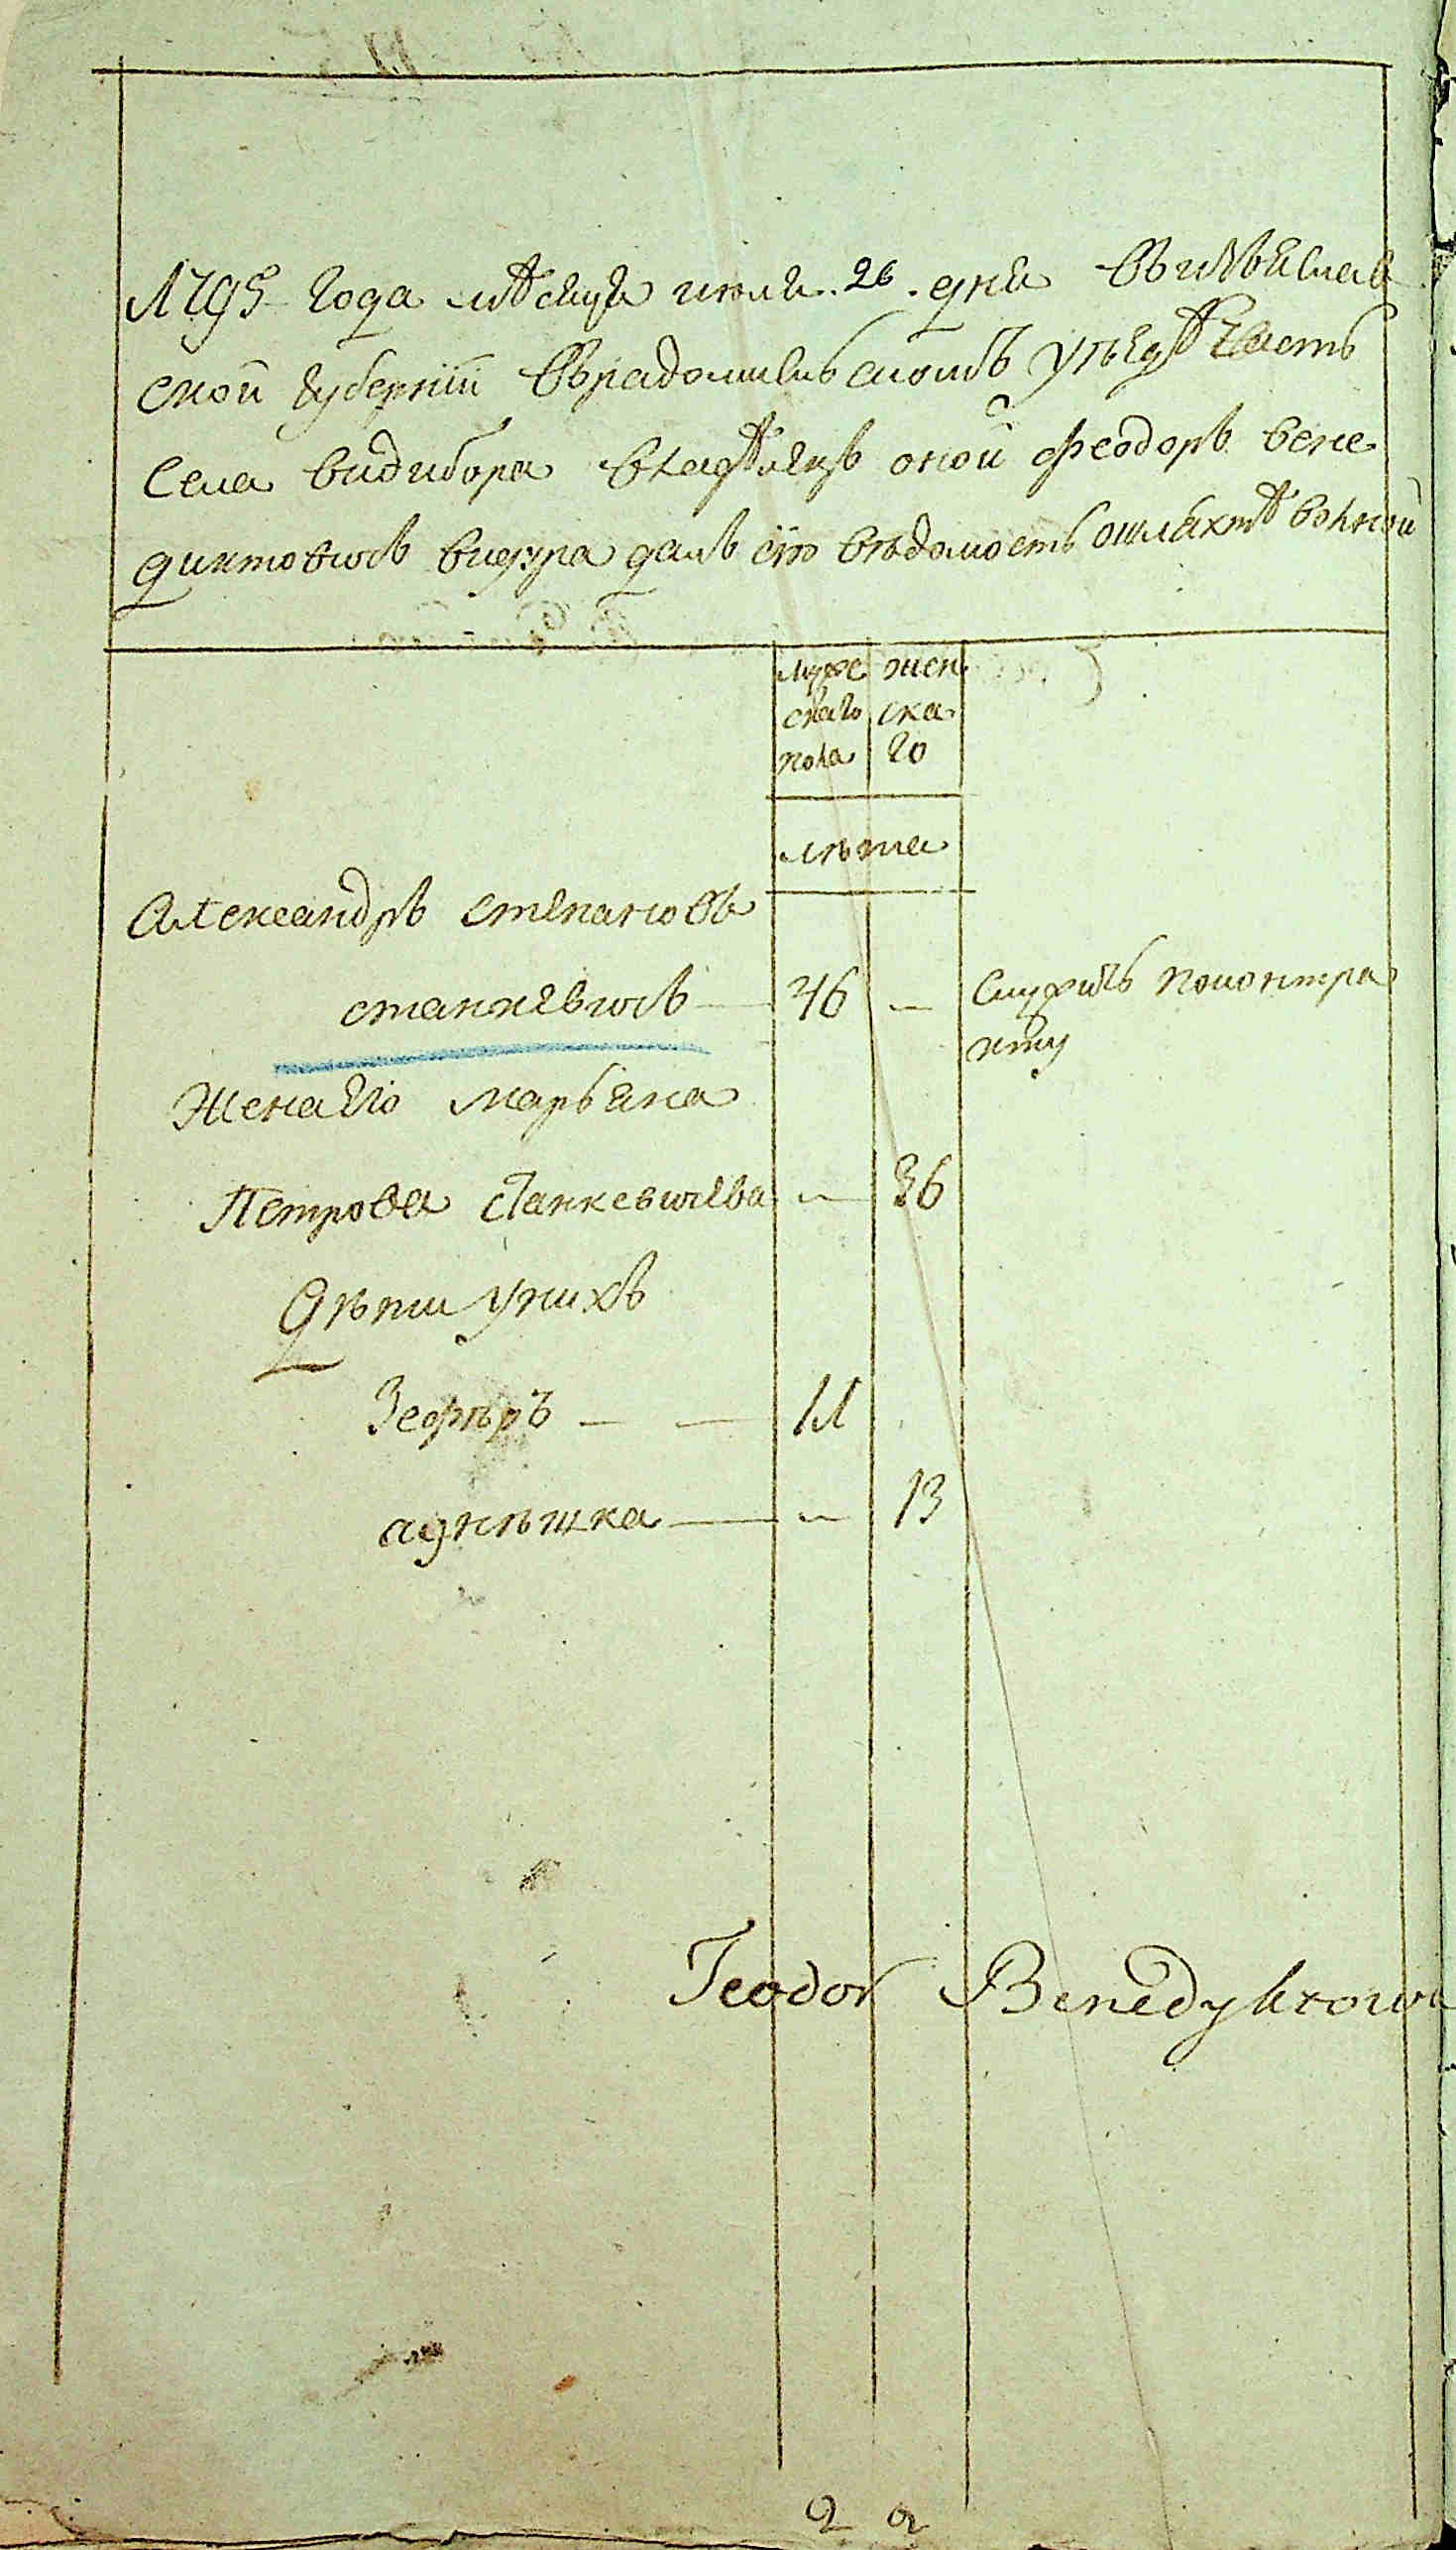 1795 года мѣсяца июля. 26. дня Въизъяслав
ской губернїи Върадомысльскомъ уѣздѣ Часть
Села видибора владѣлецъ оной феодоръ бене
диктовичъ выдра далъ сїю вѣдомость ошляхтѣ волной
муже жен
скаго ска
пола го
лѣта
Александръ степановъ
станкевичъ 46 Служитъ поконтра
кту
Жена его марьяна
Петрова станкевичева 36
Дѣти унихъ
Зефѣръ 11
агнѣшка 13
Teodor Benedyktowi
2 2